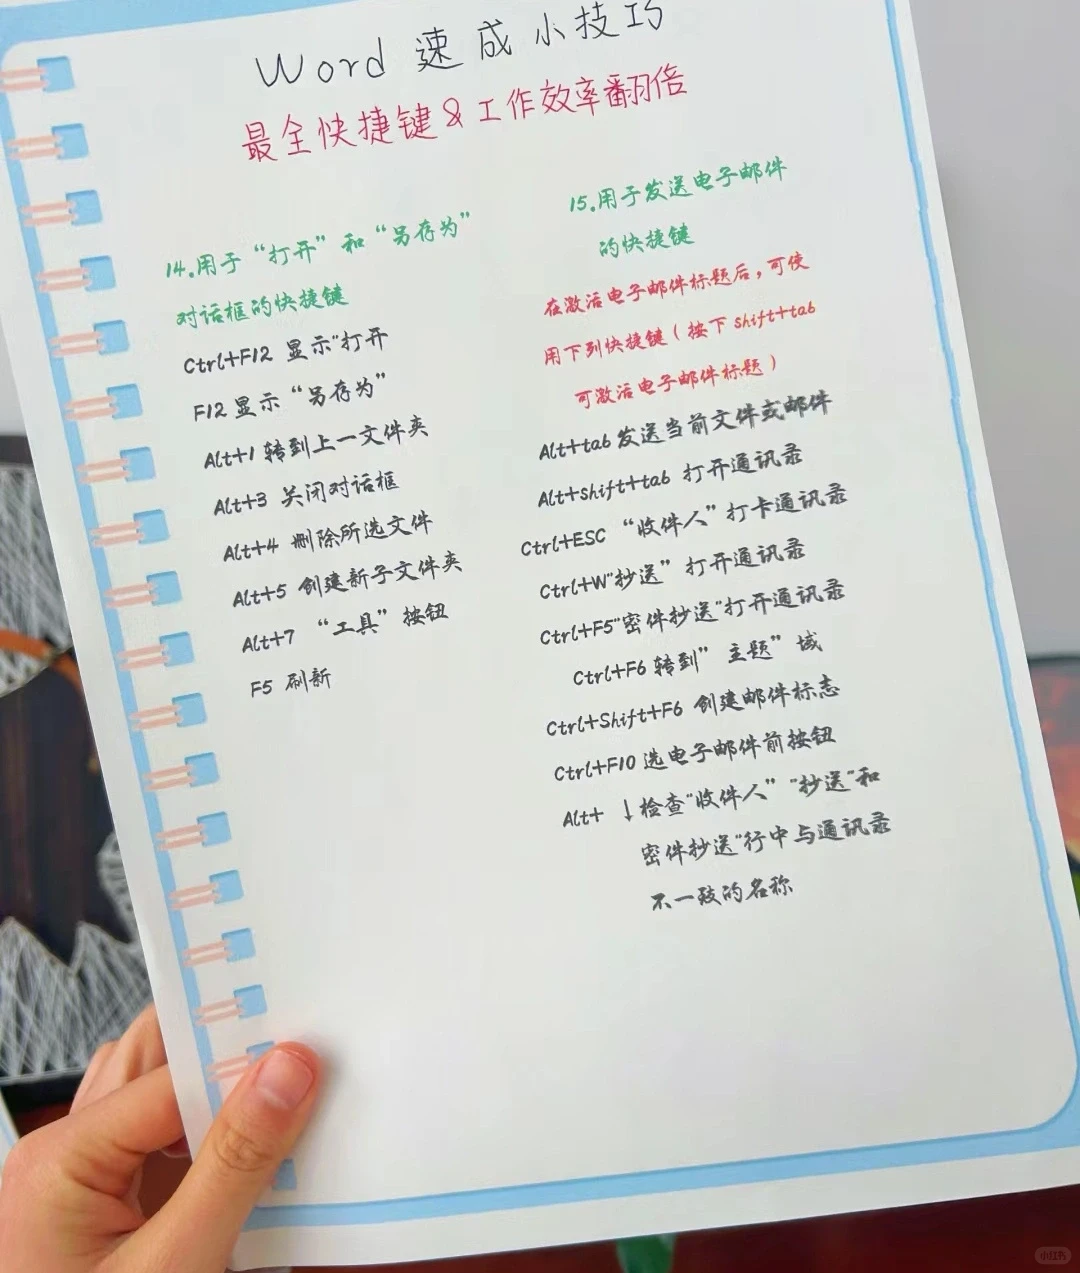 Word 速成小技巧
最全快捷键&工作效率翻倍
14.用于“打开”和“另存为”
对话框的快捷键
Ctrl+F12 显示“打开
F12 显示“另存为”
Alt+1 转到上一文件夹
Alt+3 关闭对话框
Alt+4 删除所选文件
Alt+5 创建新子文件夹
Alt+7 “工具”按钮
F5 刷新
15.用于发送电子邮件
的快捷键
在激活电子邮件标题后，可使
用下列快捷键（按下shift+tab
可激活电子邮件标题）
Alt+tab 发送当前文件或邮件
Alt+shift+tab 打开通讯录
Ctrl+ESC “收件人”打卡通讯录
Ctrl+W“抄送”打开通讯录
Ctrl+F5“密件抄送”打开通讯录
Ctrl+F6 转到”主题”域
Ctrl+Shift+F6 创建邮件标志
Ctrl+F10 选电子邮件前按钮
Alt+ ↓检查“收件人”“抄送”和
密件抄送”行中与通讯录
不一致的名称
小红书